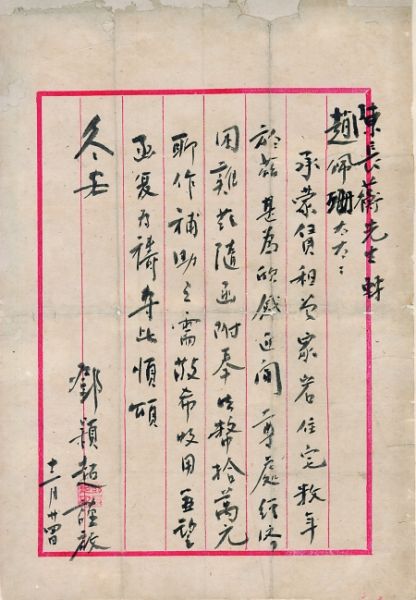 陳長蘅先生
趙佩珊太太：
承蒙賃租曾家岩住宅数年
於茲甚為欣感近間尊處經济
困難茲隨函附奉法幣拾萬元
聊作補助之需敬希收用並望
函复为禱專此順頌
冬安
鄧穎超謹啟
十二月廿四